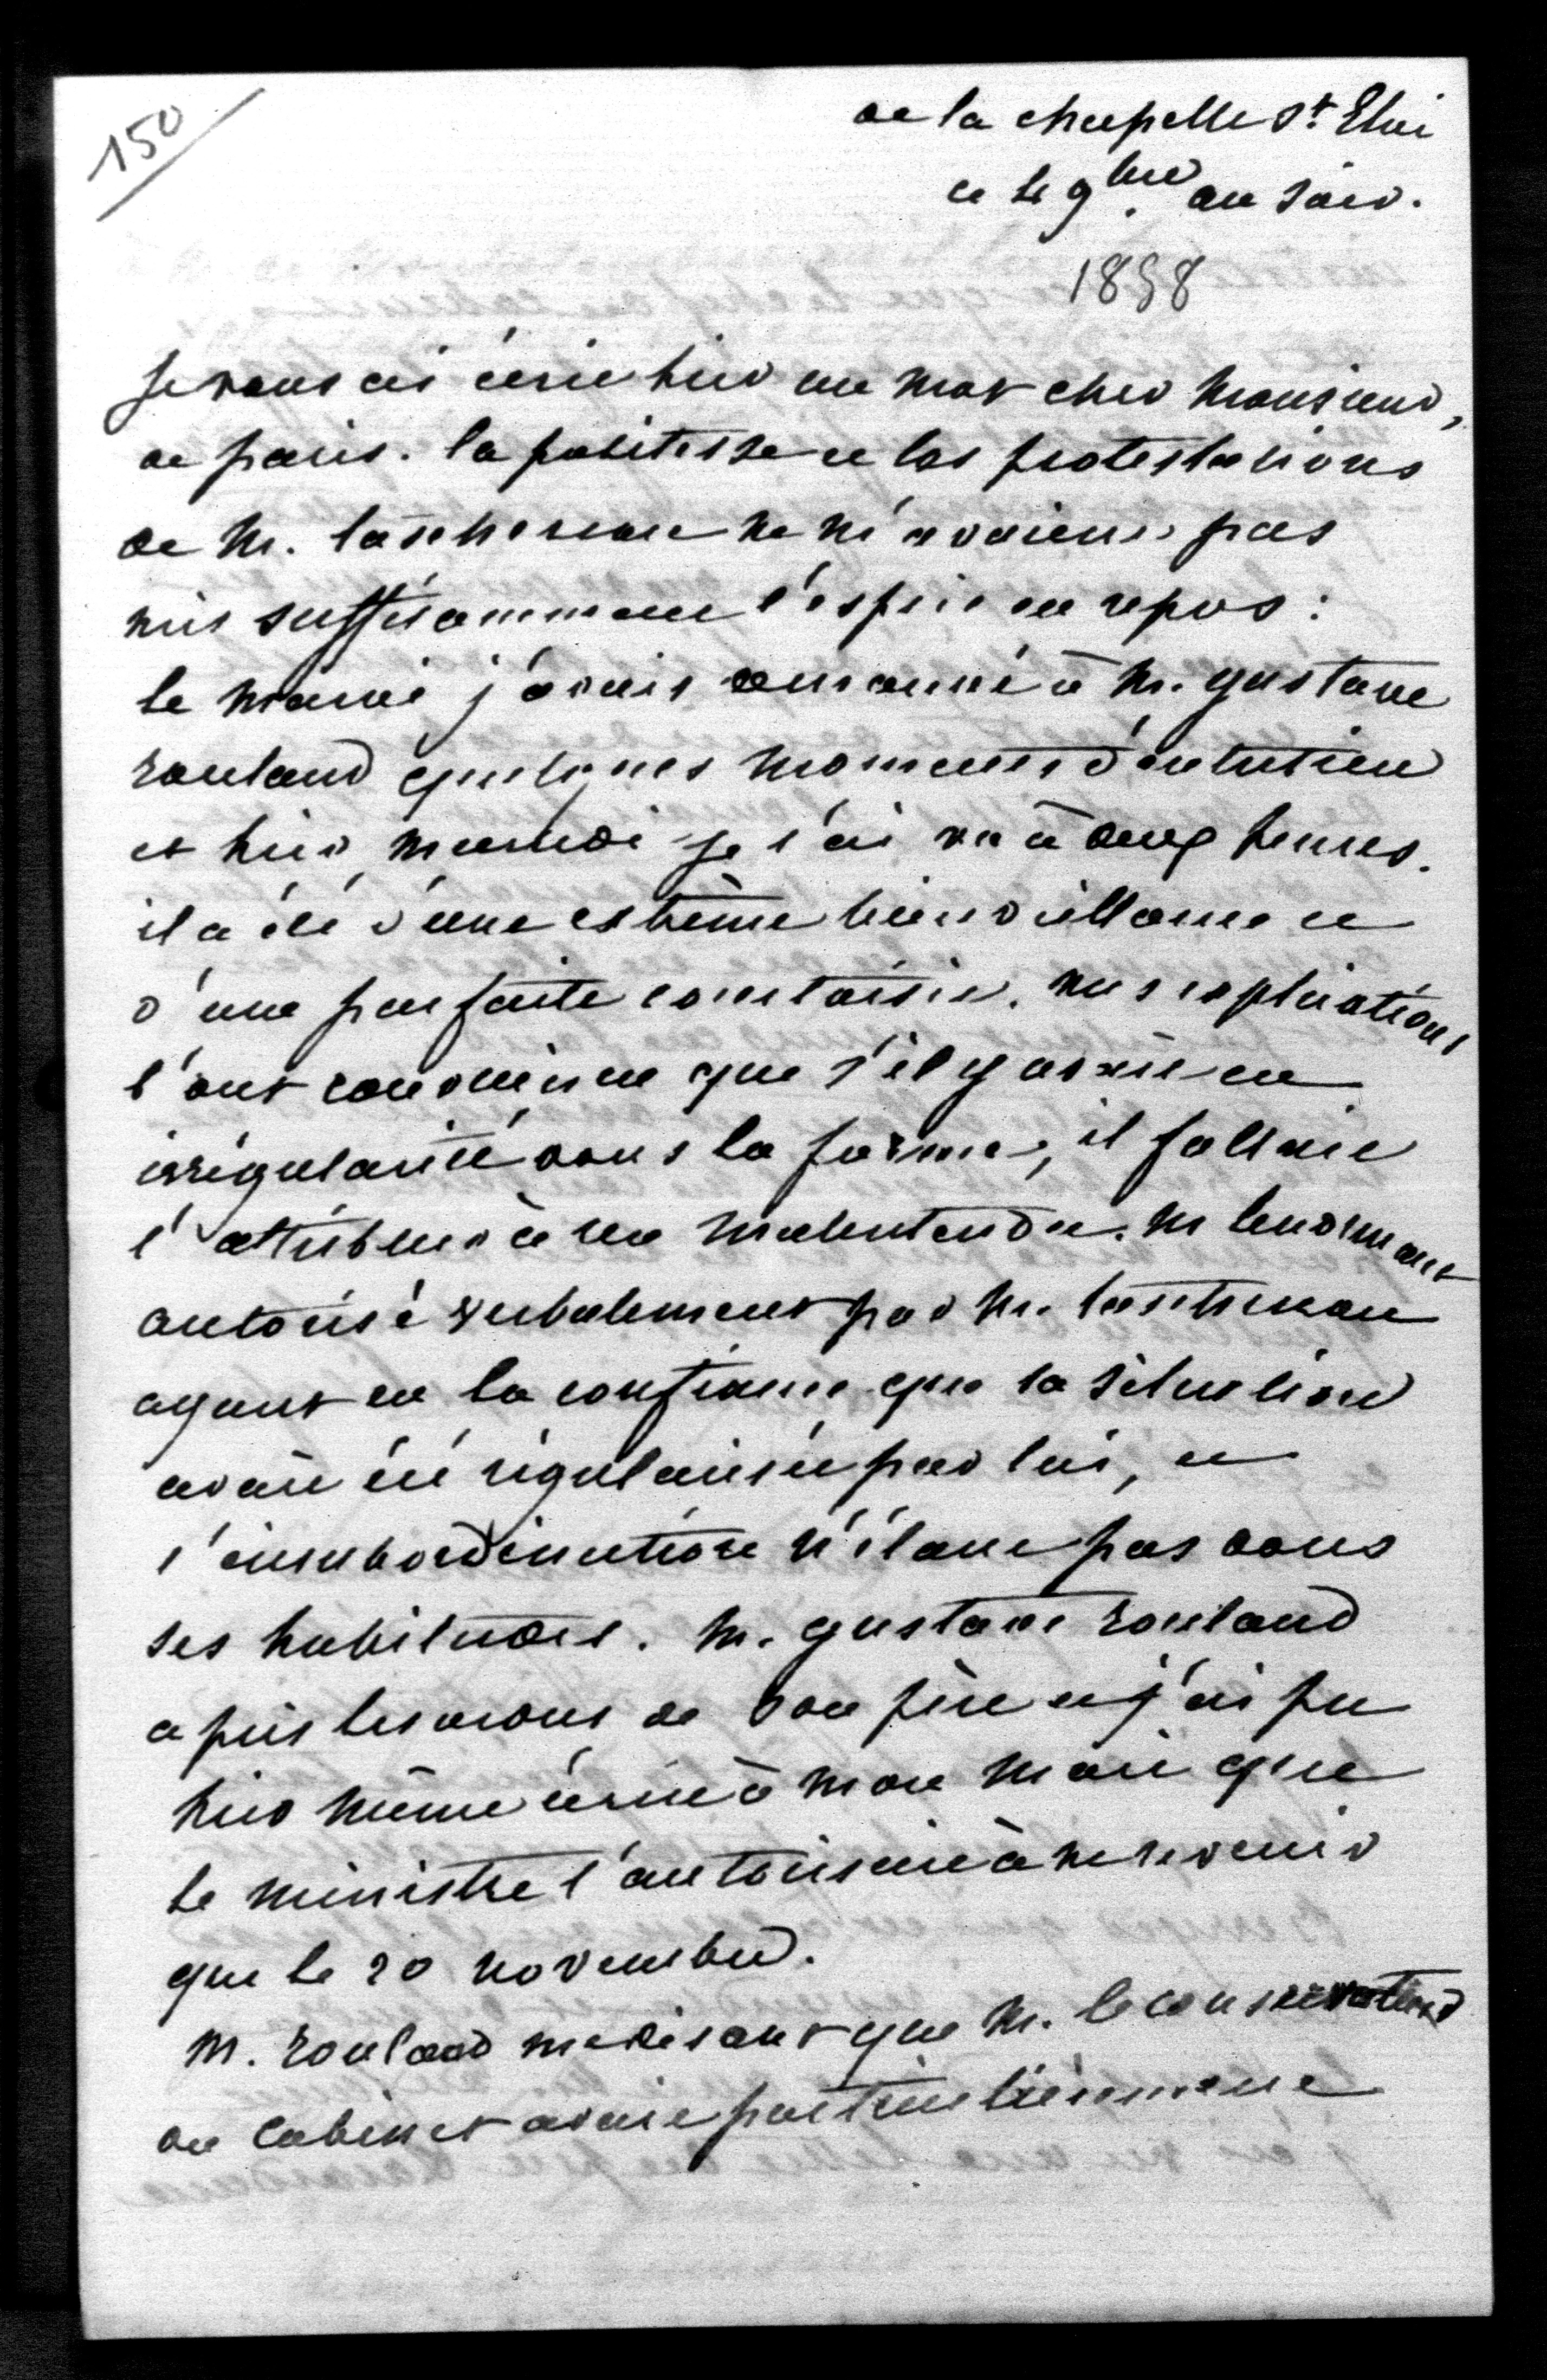 150
de la chapelle St. Eloi
ce le 9bre au soir.
1858
je vous ai écrit hier un mot cher Monsieur,
de paris. la politesse et les protestations
de M. taschereau ne m'avaient pas
mis suffisamment l'esprit en repos :
le matin j'avais demandé à M. gustave
rouland quelques moments d'entretien
et hier, mercredi je l'ai vu à deux heures.
il a été d'une extrême bienveillance et
d'une parfaite courtoisie. mes explications
l'ont convaincu que s'il y avait eu
irrégularité dans la forme, il fallait
l'attribuer à un malentendu. M lenormant
autorisé verbalement par M. taschereau
ayant eu la confiance que la situation
avait été régularisée par lui, et
l'insubordination n'étant pas dans
ses habitudes. M. gustave rouland
a pris les ordres de son père et j'ai pu
hier même écrire à mon mari que
le ministre l'autorisait à ne revenir
que le 20 novembre.
M. rouland me disant que M. le conservateur
du cabinet avait particulièrement